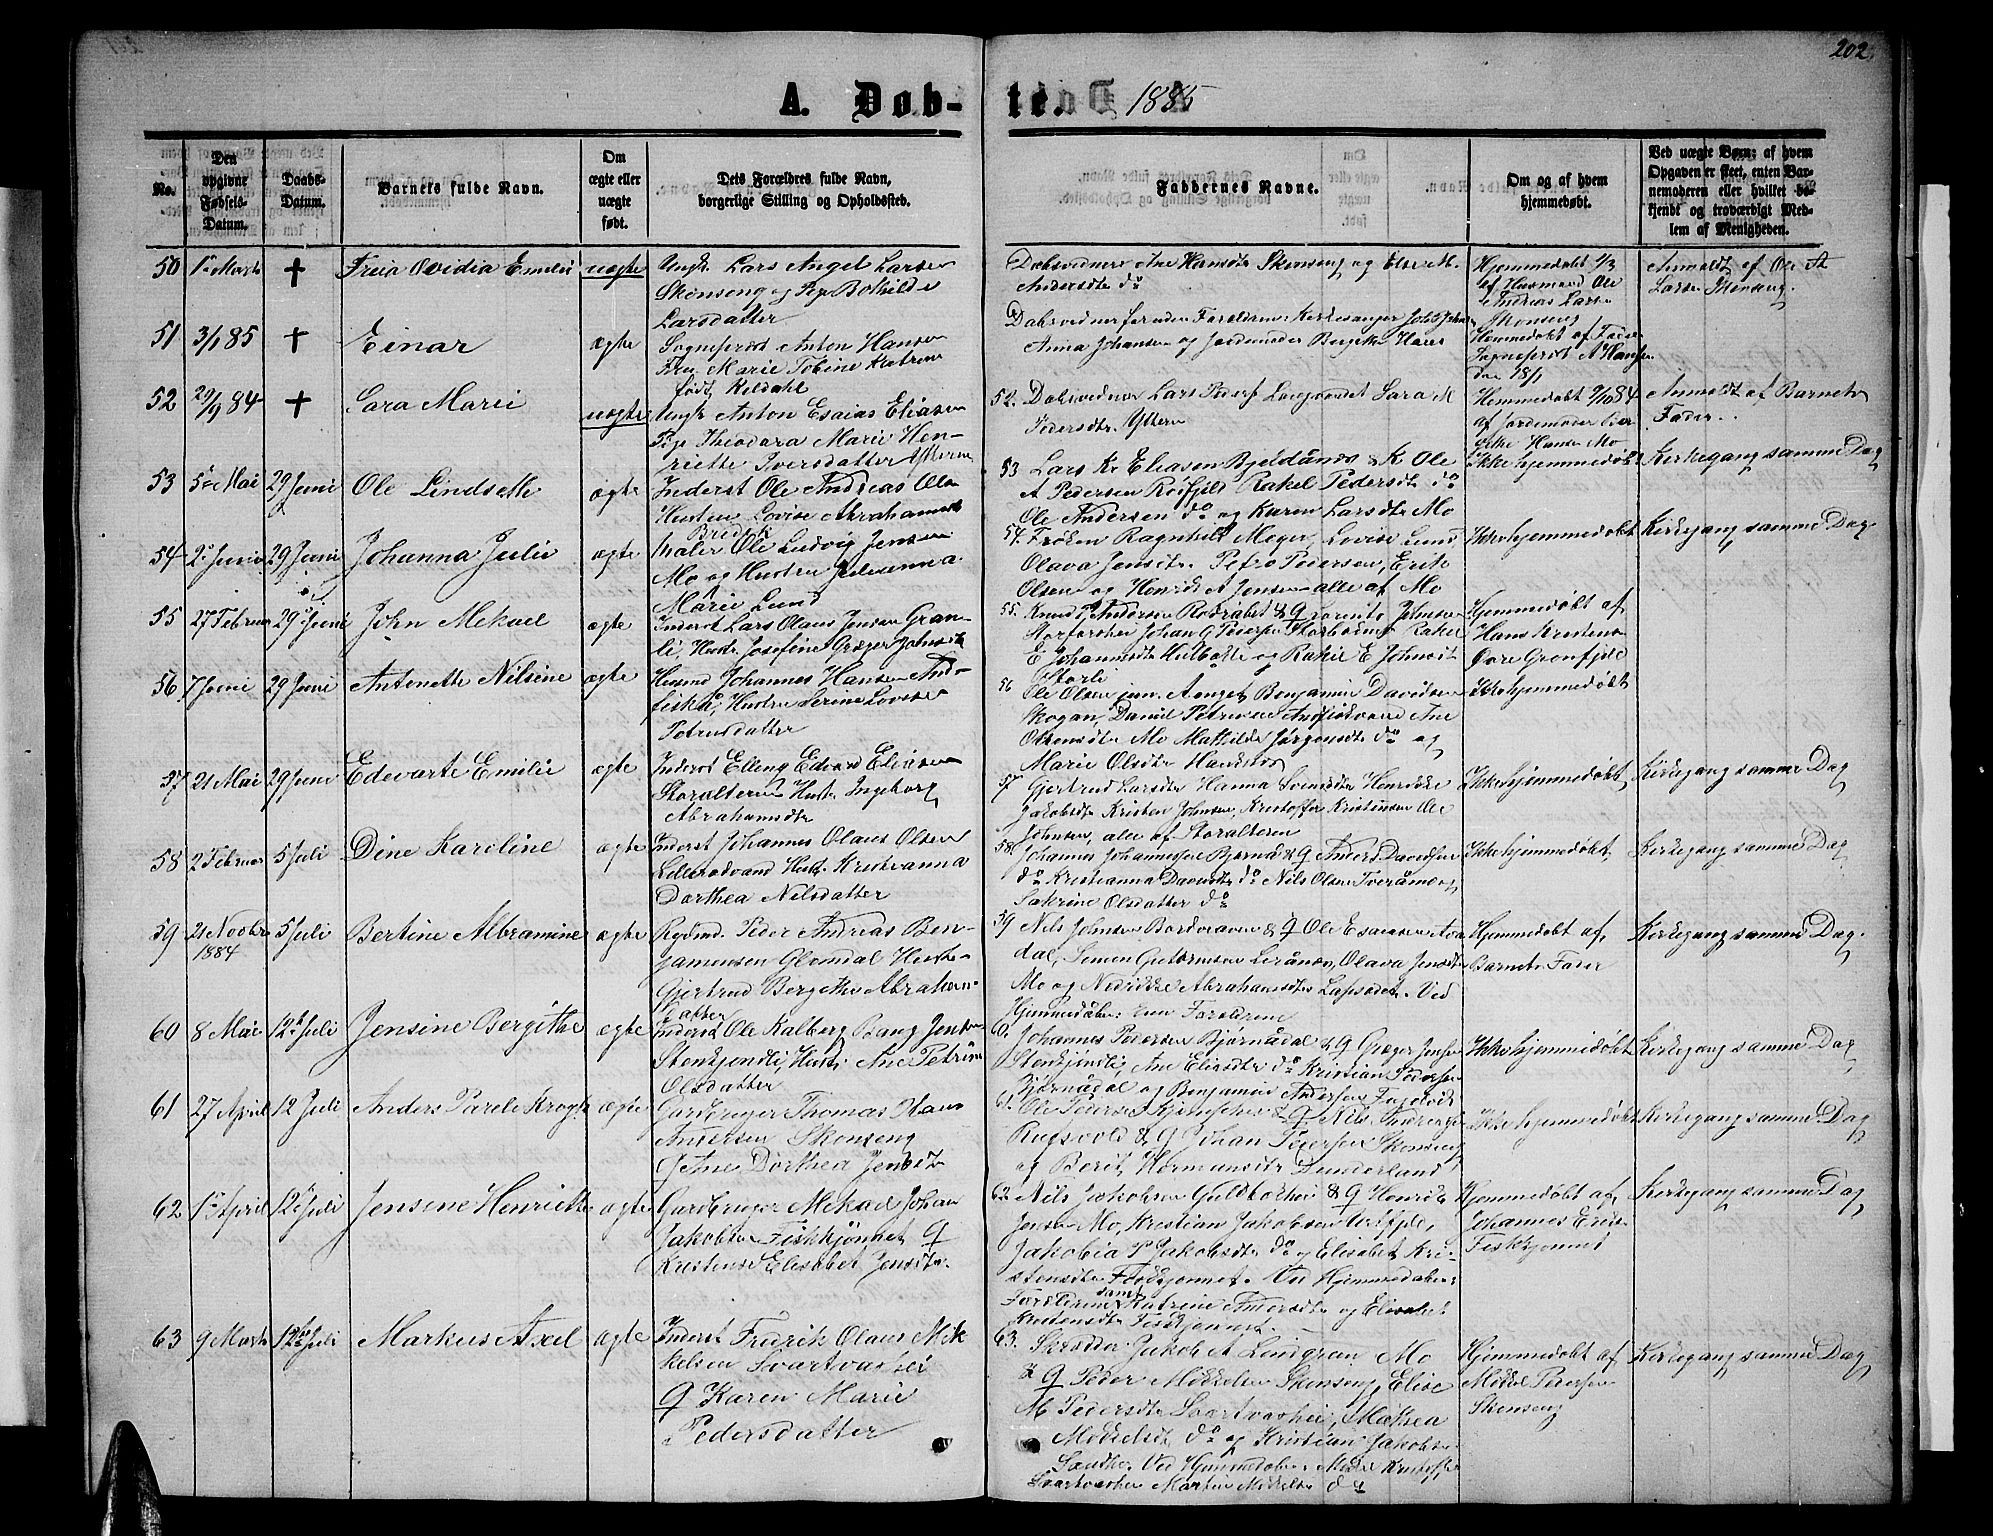 202.
A. Døb-
te. 1885
No.
Den opgivne Fødsels-Datum.
Daabs-Datum.
Barnets fulde Navn.
Om ægte eller uægte født.
Dets Forældres fulde Navn, borgerlige Stilling og Opholdssted.
Faddernes Navne.
Om og af hvem hjemmedøbt.
Ved uægte Børn: af hvem Opgaven er skeet, enten Barnemoderen eller hvilket bekjendt og troværdigt Medlem af Menigheden.
50
+
Freia Ovidia Emilie
uægte
Ungk. Lars Angel Larsen
Skonseng og Pige Bothilde
Larsdatter
Dobsvidner Ane Hansdtr Skonseng og Else M.
Andersdtr do
Hjemmedøbt
af Husmand Ole
Andreas Larsen
Skonseng
Anmeldt af Ole A
Larsen Skonseng.
51
3/1 85
+
Einar
ægte
Sogneprest Anton Hansen
Fru Marie Tobine Katrine
født Keldahl
Anna Johansen og Jordemoder Bergitte Hans
Hemmedøbt af Fader
Sogneprest A Hansen
den 18/1
52
29/9 84
+
Sara Marie
uægte
Ungk Anton Esaias Eliasen
Pige Theodora Marie Hen-
riette Iversdatter Ytteren
52. Dobsvidner Lars Peders Langvandet Sara M
Pedersdtr. Yttern
Hemmedøbt 9/10 84
af Jordemoder Ber-
gitte Hans Mo
Anmeldt af Barnets
Fader.
53
5te Mai
29 Juni
Ole Lindseth
ægte
Inderst Ole Andreas Olsen
Hustru Lovise Abrahamsdtr
Bredek
53 Lars Kr Eliasen Bjeldånes & K Ole
A Pedersen Rosfjeld Rakel Pedersdtr do
Ole Andersen do og Karen Larsdtr Mo
Ikke hjemmedøbt
Kirkegang samme Dag
54
2 Juni
29 Juni
Johanna Julie
ægte
Maler Ole Ludvig Jensen
Mo og Hustru Pedrianna
Marie Lund
54. Frøken Ragnhild Meyer, Lovise Lund
Olava Jensdtr. Petro Pedersen, Erik
Olsen og Henrik A Jensen alle af Mo
Ikke hjemmedøbt
Kirkegang samme Dag
55
27 Februar
29 Juni
John Mekael
ægte
Inderst Lars Olaus Jensen Gran-
li, Hustr. Josefine Græger Johnsdtr
55. Knud Andersen Rødrabet & Q
Johan G Pedersen Storbodnes Rakel
E Johansdtr Kulbotte og Rakel E Johnsdtr
Storli
Hjemmedøbt af
Hans Kristens
Øvre Grønfjeld
56
7 Juni
29 Juni
Antonette Nilsine
ægte
Husmd Johannes Hansen And-
fiskå, Hustru Serine Lovise
Petersdatter
56 Ole Olsen jun. Aenget Benjamin Davidsen
Skogan, Daniel Petersen Andfiskvand Ane
Olsensdtr Mo Mathilde Jørgensdtr do og
Marie Olsdtr Hauknes
Ikke hjemmedøbt
57
21 Mai
29 Juni
Edevarte Emilie
ægte
Inderst Elling Edvard Eliasen
Storalteren Hustr Ingeborg
Abrahamsdtr
57 Gjertrud Larsdtr Hanna Svensdtr Henrikke
Jakobsdtr Kristen Johnsen, Kristoffer Kristensen Ole
Johnsen, alle af Storalteren
Ikke hjemmedøbt
Kirkegang samme Dag
58
2 Februar
5 Juli
Dine Karoline
ægte
Inderst Johannes Olaus Olsen
Lillerødvand Hustr. Kristianna
Dorthea Nilsdatter
58. Johannes Johannesen Bjørnå & Q Anders Davidsen
do Kristianna Davidsdtr do Nils Olsen Tverånes og
Sakrine Olsdatter do
Ikke hjemmedøbt
Kirkegang samme Dag
59
21 Novbr 1884
5 Juli
Bertine Albramine
ægte
Rydmd. Peder Andreas Ben-
jamensen Glomdal Hustr.
Gjertrud Bergitte Abraham-
datter
59 Nils Johnsen Bordveaven & Q Ole Esaiassen
dal, Simon Guttormsen Leirånes, Olava Jensdtr
Mo og Nedrikke Abrahamsdtr Lapsødet. Ved
Hjemmedåben: Forældrene
Hjemmedøbt af
Barnets Fader
Kirkegang samme Dag.
60
8 Mai
12 Juli
Jensine Bergithe
ægte
Inderst Ole Kalberg Bang Jensen
Stenkjondli, Hustr. Ane Petrine
Olsdatter
60. Johannes Pedersen Bjørnådal & Q Græger Jensen
Stenkjøndli, Ane Eliasdtr do Kristian Pedersen
Bjørnådal og Benjamin Andersen Fagervik
Ikke hjemmedøbt
Kirkegang samme Dag
61
27 April
12 Juli
Anders Parele Krogh
ægte
Gardbruger Thomas Hans
Andersen Skonseng
Q Ane Dorthea Jensdtr
61. Ole Pedersen & Q Nils
Rufsvold & Q Johan Pedersen Skonseng
og Berit Hermansdtr Dunderland
Ikke hjemmedøbt
Kirkegang samme Dag
62
1 April
12 Juli
Jensine Henriette
ægte
Gardbruger Mekael Johan
Jakobsen Fiskkjønnet Q
Kristense Elisabet Jensdtr.
62 Nils Jakobsen Guldholhei & Q Henrik
Jensen Mo, Kristian Jakobsen Urtfjel,
Jakobia P Jakobsdtr do og Elisabet Kri-
stensdtr Fiskkjønnet. Ved Hjemmedåben:
Forældrene samt Katrine Andersdtr og Elisabet
Kristensdtr Fiskkjønnet.
Hjemmedøbt af
Johannes Eriks
Fiskkjønnet
Kirkegang samme Dag
63
9 Marts
12 Juli
Markus Axel
ægte
Inderst Fredrik Olaus Mik-
kelsen Svartvashei
Q Karen Marie
Pedersdatter
63. Skredder Jakob A Lindgren Mo
& Q Peder Mekkelsen Skonseng, Elise
M Pedersdtr Svartvashei, Mathea
Mekkelsdtr do og Kristian Jakobsen
Sandhei. Ved Hjemmedåben: Mekkel Kristoffer
Svartvashei Martin Mikkelsen do
Hjemmedøbt af
Mekkel Petersen
Skonseng
Kirkegang samme Dag